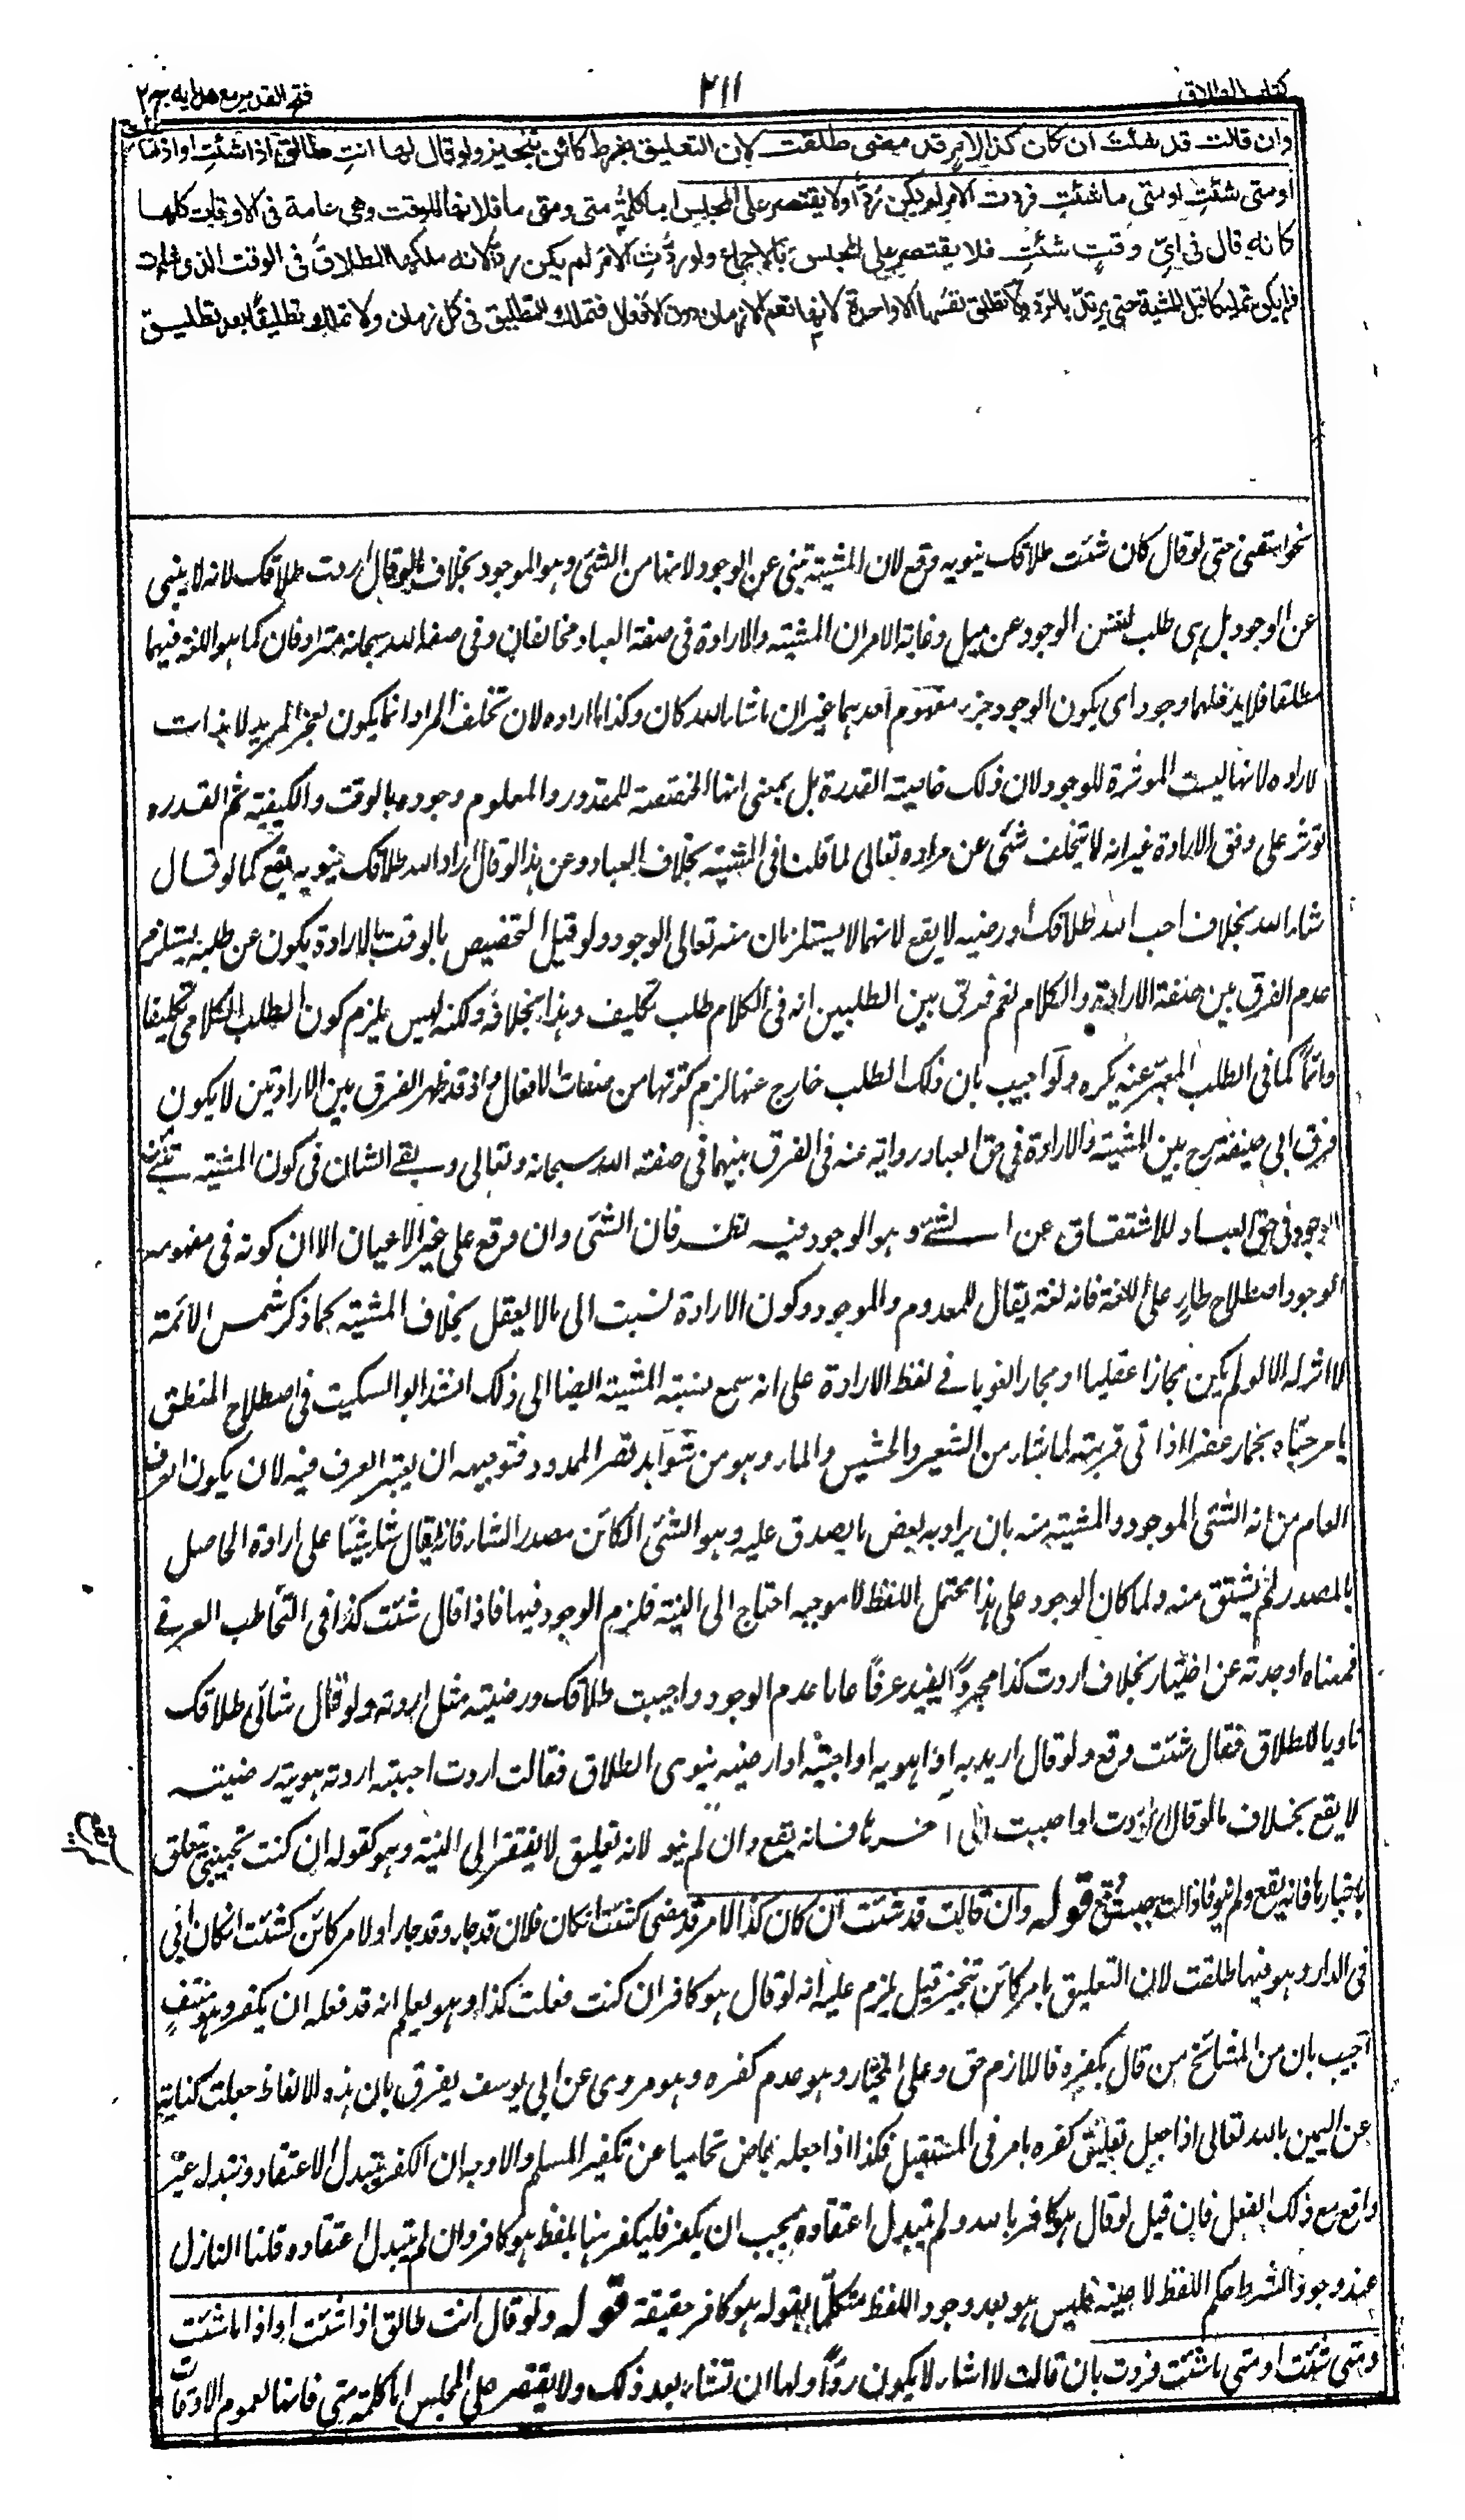 كتاب الطلاق
٢١١
فتح القدير مع هداية ج ٢
وان قالت قد شئت ان كان كذا لامر قد مضى طلقت لان التعليق بشرط كائن تنجيز ولو قال لها انت طالق اذا شئت او اذا ما
او متى شئت او متى ما شئت فردت الامر لم يكن ردا ولا يقتصر على المجلس اما كلمة متى ومتى ما فلانها للوقت وهى عامة فى الاوقات كلها
كانه قال فى اى وقت شئت فلا يقتصر على المجلس بالاجماع ولو ردت الامر لم يكن ردا لانه ملكها الطلاق فى الوقت الذى شاءت
فلم يكن تمليكا قبل المشية حتى يرتد بالرد ولا تطلق نفسها الا واحدة لانها تعم الازمان دون الافعال فتملك التطليق فى كل زمان ولا تملك تطليقا بعد تطليق
نحو استقنى حتى لو قال كان شئت طلاقك ينويه وقع لان المشية تنبئ عن الوجود لانها من الشئ وهو الموجود بخلاف ما لو قال اردت طلاقك لانه لا ينبئ
عن الوجود بل هى طلب لنفس الوجود عن ميل وغاية الامر ان المشية والارادة فى صفة العباد مختلفان وفى صفة الله سبحانه مترادفان كما هو اللغة فيهما
مطلقا فلا يدخلهما وجود اى يكون الوجود جزء مفهوم احدهما غير ان ما شاء الله كان وكذا ما اراده لان تخلف المراد انما يكون لعجز المريد لا بذات
الارادة لانها ليست المؤثرة للوجود لان ذلك خاصية القدرة بل بمعنى انها المخصصة للمقدور المعلوم وجوده بالوقت والكيفية ثم القدرة
تؤثر على وفق الارادة غير انه لا يتخلف شئ عن مراده تعالى لما قلنا فى المشية بخلاف العباد وعن هذا لو قال اراد الله طلاقك ينويه يقع كما لو قال
شاء الله بخلاف احب الله طلاقك او رضيه لا يقع لانهما لا يستلزمان منه تعالى الوجود ولو قيل التخصيص بالوقت بالارادة يكون عن طلبه يستلزم
عدم الفرق بين صفة الارادة والكلام نعم فرق بين الطلبين انه فى الكلام طلب تكليف وهذا بخلافه ولكنه ليس يلزم كون الطلب الكلامى تكليفا
دائما كما فى الطلب المعبر عنه بكره ولو اجيب بان ذلك الطلب خارج عنها لزم كونها من صفات الافعال واذ قد ظهر الفرق بين الارادتين لا يكون
فرق ابى حنيفة رح بين المشية والارادة فى حق العباد رواية عنه فى الفرق بينهما فى صفة الله سبحانه وتعالى وبقى الشان فى كون المشية تنبئ عن
الوجود فى حق العباد للاشتقاق عن الشئ وهو الوجود فيه نظر فان الشئ وان وقع على غير الاعيان الا ان كونه فى مفهومه
الوجود اصطلاح طار على اللغة فانه لغة يقال للمعدوم والموجود وكون الارادة نسبت الى ما لا يعقل بخلاف المشية كما ذكر شمس الائمة
لا اثر له الا لو لم يكن مجازا عقليا او مجازا لغويا فى لفظ الارادة على انه سمع نسبة المشية ايضا الى ذلك انشد ابو السكيت فى اصطلاح المنطق
يا مرحباه بحمار عفراء اذا اتى قربته لما شاء من الشعير والحشيش والماء وهو من شواهد قصر الممدود فتوجيهه ان يعتبر العرف فيه لان يكون العرف
العام من انه الشئ الموجود والمشية منه بان يراد به بعض ما يصدق عليه وهو الشئ الكائن مصدر الشاء فانه يقال شاء شيئا على ارادة الحاصل
بالمصدر ثم يشتق منه ولما كان الوجود على هذا محتمل اللفظ لا موجبه احتاج الى النية فلزم الوجود فيها فاذا قال شئت كذا فى التخاطب العرفى
فمعناه اوجدته عن اختيار بخلاف اردت كذا مجردا يفيد عرفا عاما عدم الوجود واحببت طلاقك ورضيته مثل اردته ولو قال شائى طلاقك
ناويا للطلاق فقال شئت وقع ولو قال اريديه او اهويه او احبيه او ارضيه ينوى الطلاق فقالت اردت احببته اردته هويته رضيته
لا يقع بخلاف ما لو قال ان اردت او احببت الى آخرها فانه يقع وان لم ينو لانه تعليق لا يفتقر الى النية وهو كقوله ان كنت تحبينى يتعلق
باخبارها فانه يقع ولم ينو فاذا قالت احببت وقع قوله وان قالت قد شئت ان كان كذا لامر قد مضى كشئت ان كان فلان قد جاء وقد جاء او لامر كائن كشئت ان كان ابى
فى الدار وهو فيها طلقت لان التعليق بامر كائن تنجيز قيل يلزم عليه انه لو قال هو كافر ان كنت فعلت كذا وهو يعلم انه قد فعله ان يكفر وهو منتف
اجيب بان من المشائخ من قال بكفره فاللازم حق وعلى المختار وهو عدم كفره وهو مروى عن ابى يوسف يفرق بان هذه الالفاظ جعلت كناية
عن اليمين بالله تعالى اذا جعل تعليق كفره بامر فى المستقبل فكذا اذا جعله بماض تحاميا عن تكفير المسلم والاوجه ان الكفر بتبدل الاعتقاد وتبدله غير
واقع مع ذلك الفعل فان قيل لو قال هو كافر بالله ولم يتبدل اعتقاده يجب ان يكفر فليكفر هنا بلفظ هو كافر وان لم يتبدل اعتقاده قلنا النازل
عند وجود الشرط حكم اللفظ لا عينه فليس هو بعد وجود اللفظ متكلما بقوله هو كافر حقيقة قوله ولو قال انت طالق اذا شئت او اذا ما شئت
ومتى شئت او متى ما شئت فردت بان قالت لا اشاء لا يكون ردا ولها ان تشاء بعد ذلك ولا يقتصر على المجلس اما كلمة متى فانها لعموم الاوقات